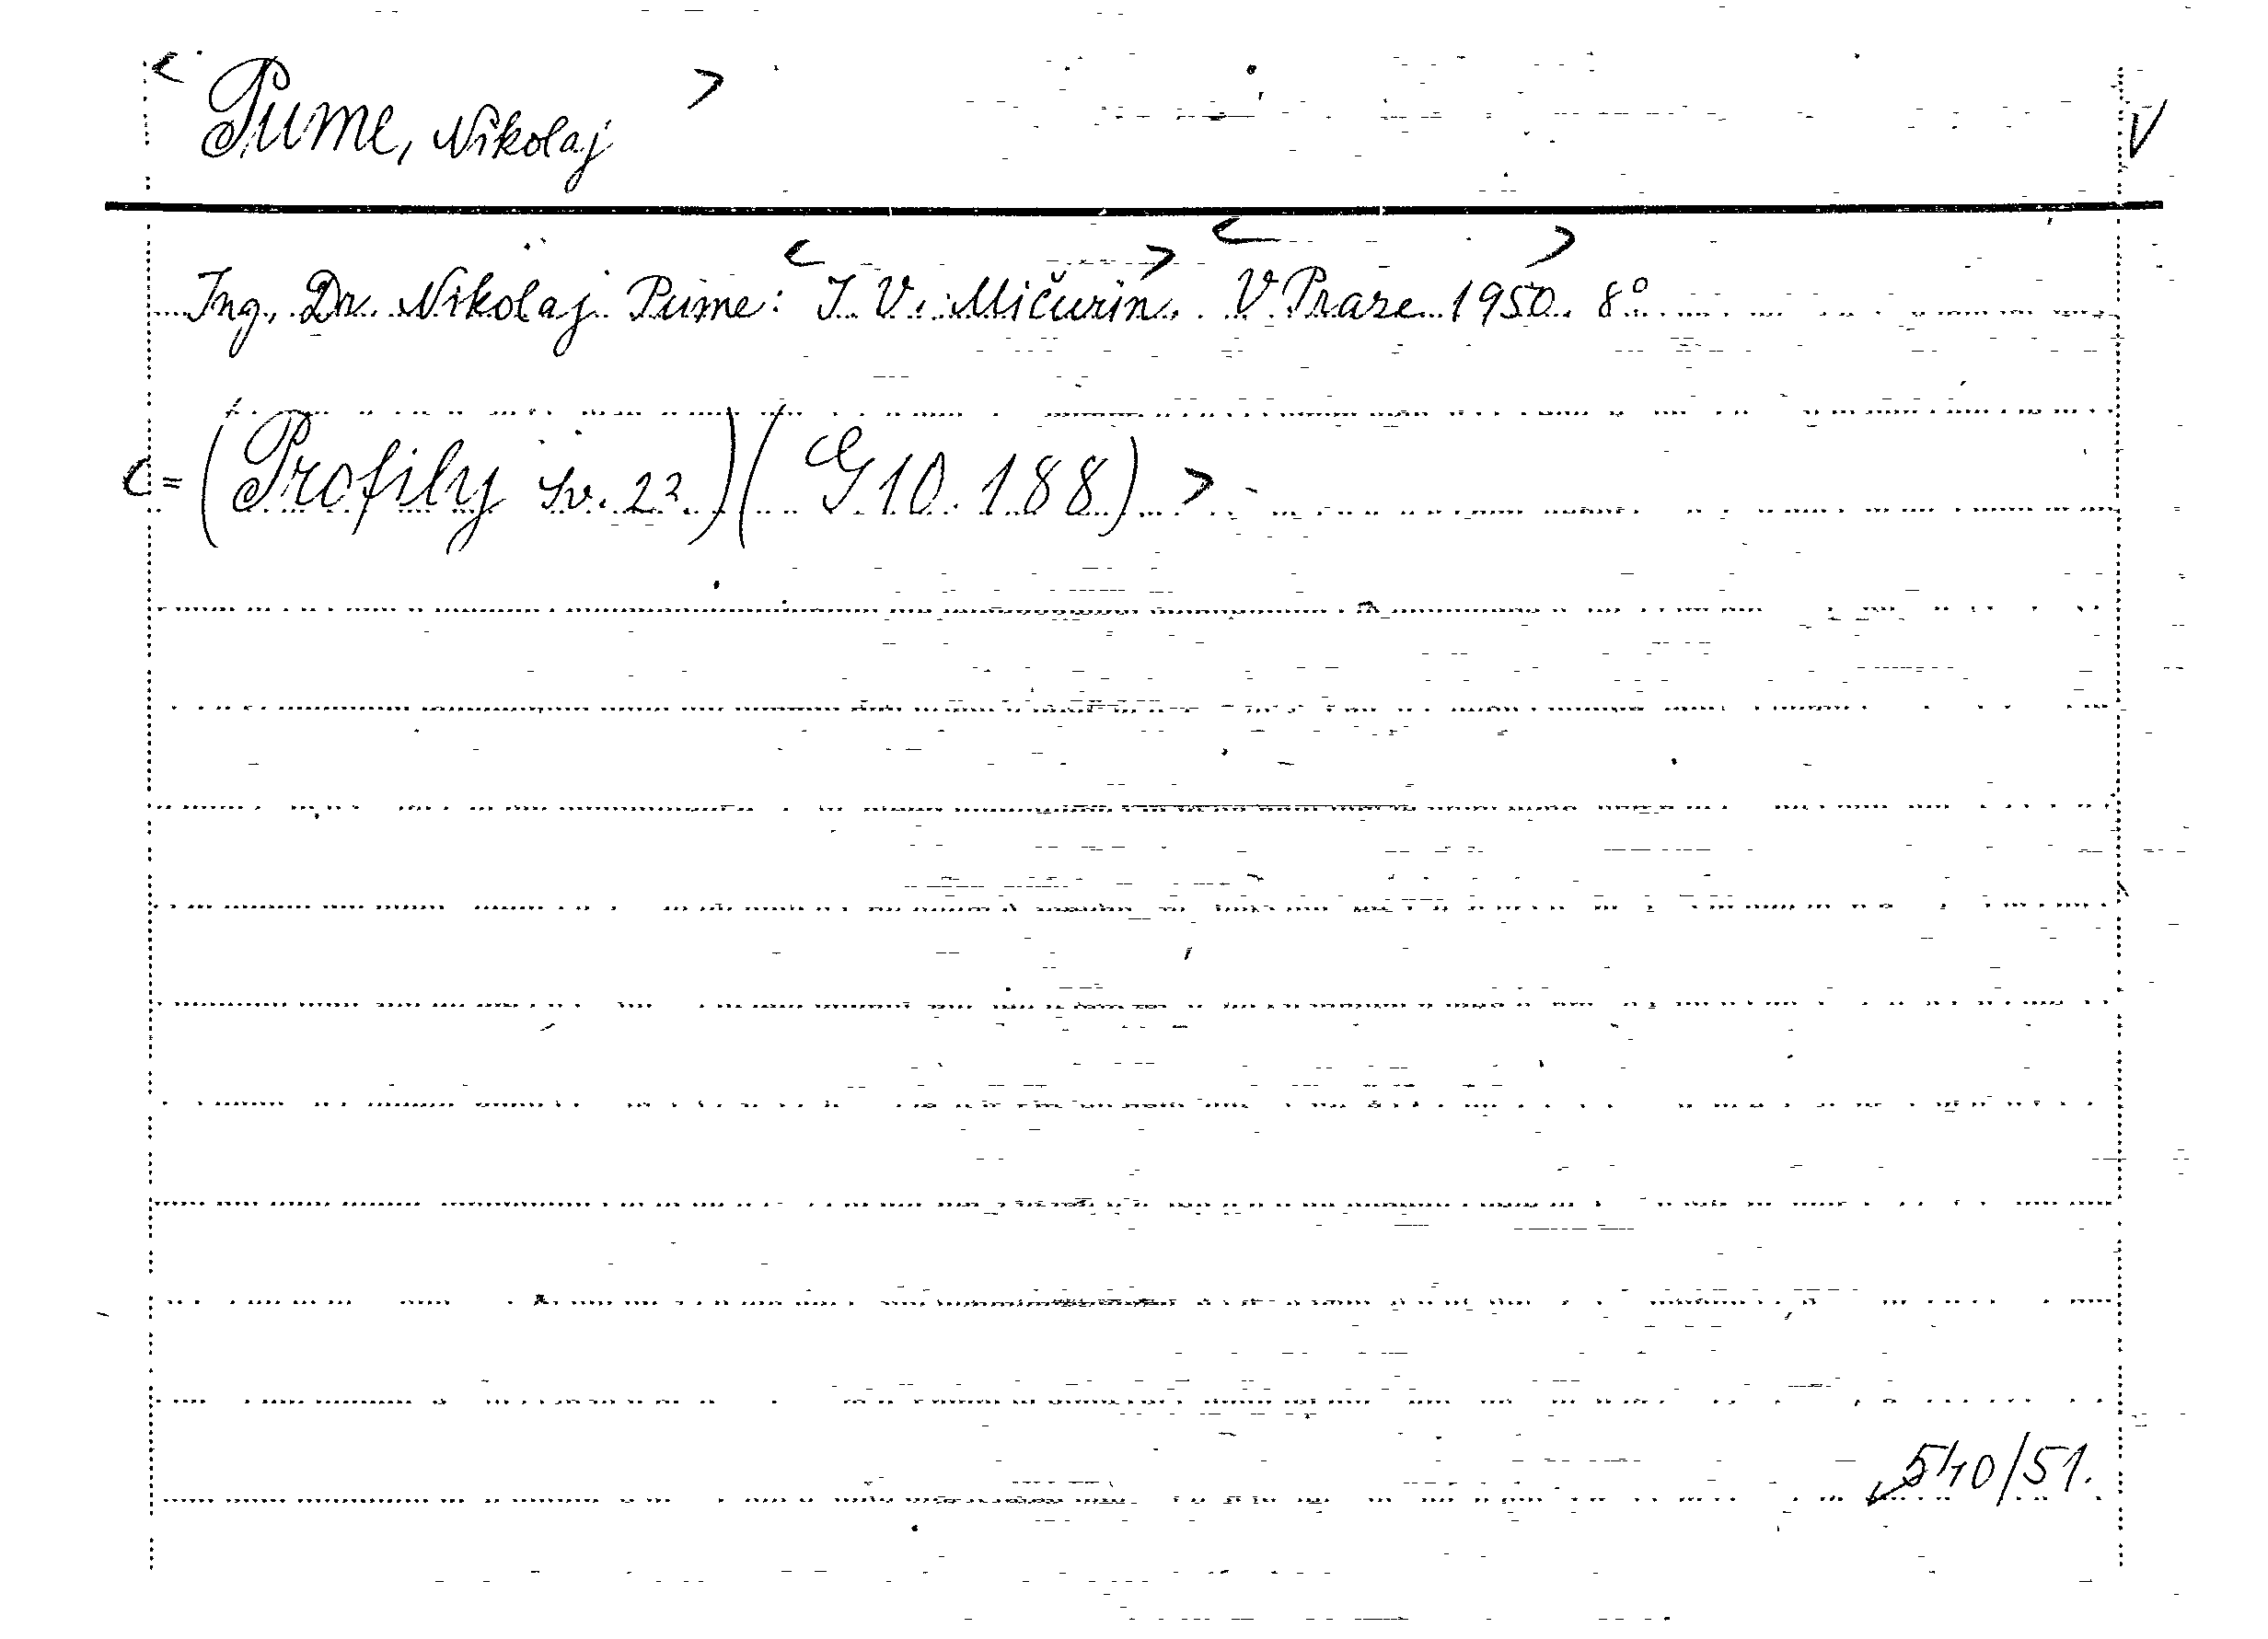 < Pume, Nikolaj > V
Ing. Dr. Nikolaj Pume: < I. V. Mičurin. > < V Praze 1950. > 8°
< = (Profily sv. 22.) (G 10.188) >
540/51.